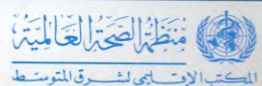 منظمة الصحة العالمية
المكتب الإقليمي لشرق المتوسط